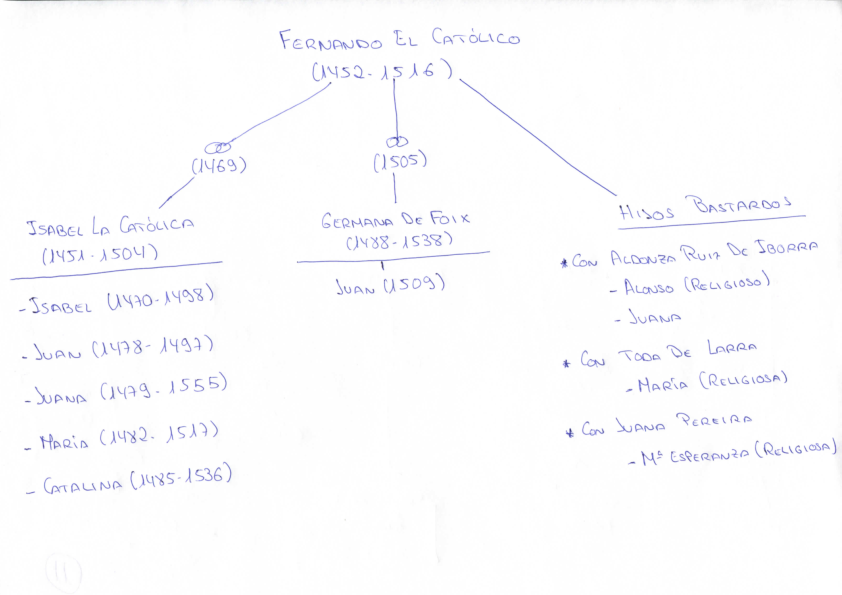 FERNANDO EL CATÓLICO
(1452-1516)
(1469)
(1505)
ISABEL LA CATÓLICA
(1451-1504)
- ISABEL (1470-1498)
- JUAN (1478-1497)
- JUANA (1479-1555)
- MARÍA (1482-1517)
- CATALINA (1485-1536)
GERMANA DE FOIX
(1488-1538)
JUAN (1509)
HIJOS BASTARDOS
* CON ALDONZA RUIZ DE IBORRA
- ALONSO (RELIGIOSO)
- JUANA
* CON TODA DE LARRA
- MARÍA (RELIGIOSA)
* CON JUANA PEREIRA
- Mª ESPERANZA (RELIGIOSA)
11